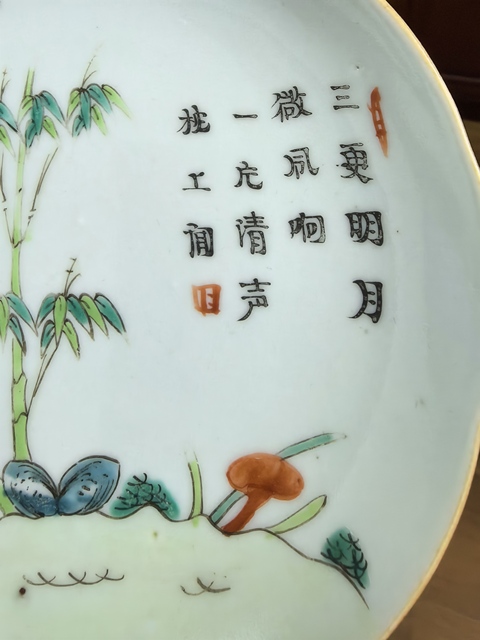 三更明月
微风响
一片清声
枕上闻